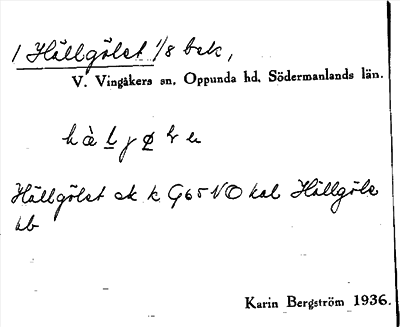 1 Hällgölet 1/8 bek,
V. Vingåkers sn. Oppunda hd. Södermanlands län.
Hällgölet ek k G65 NO kal Hällgöle
Karin Bergström 1936.